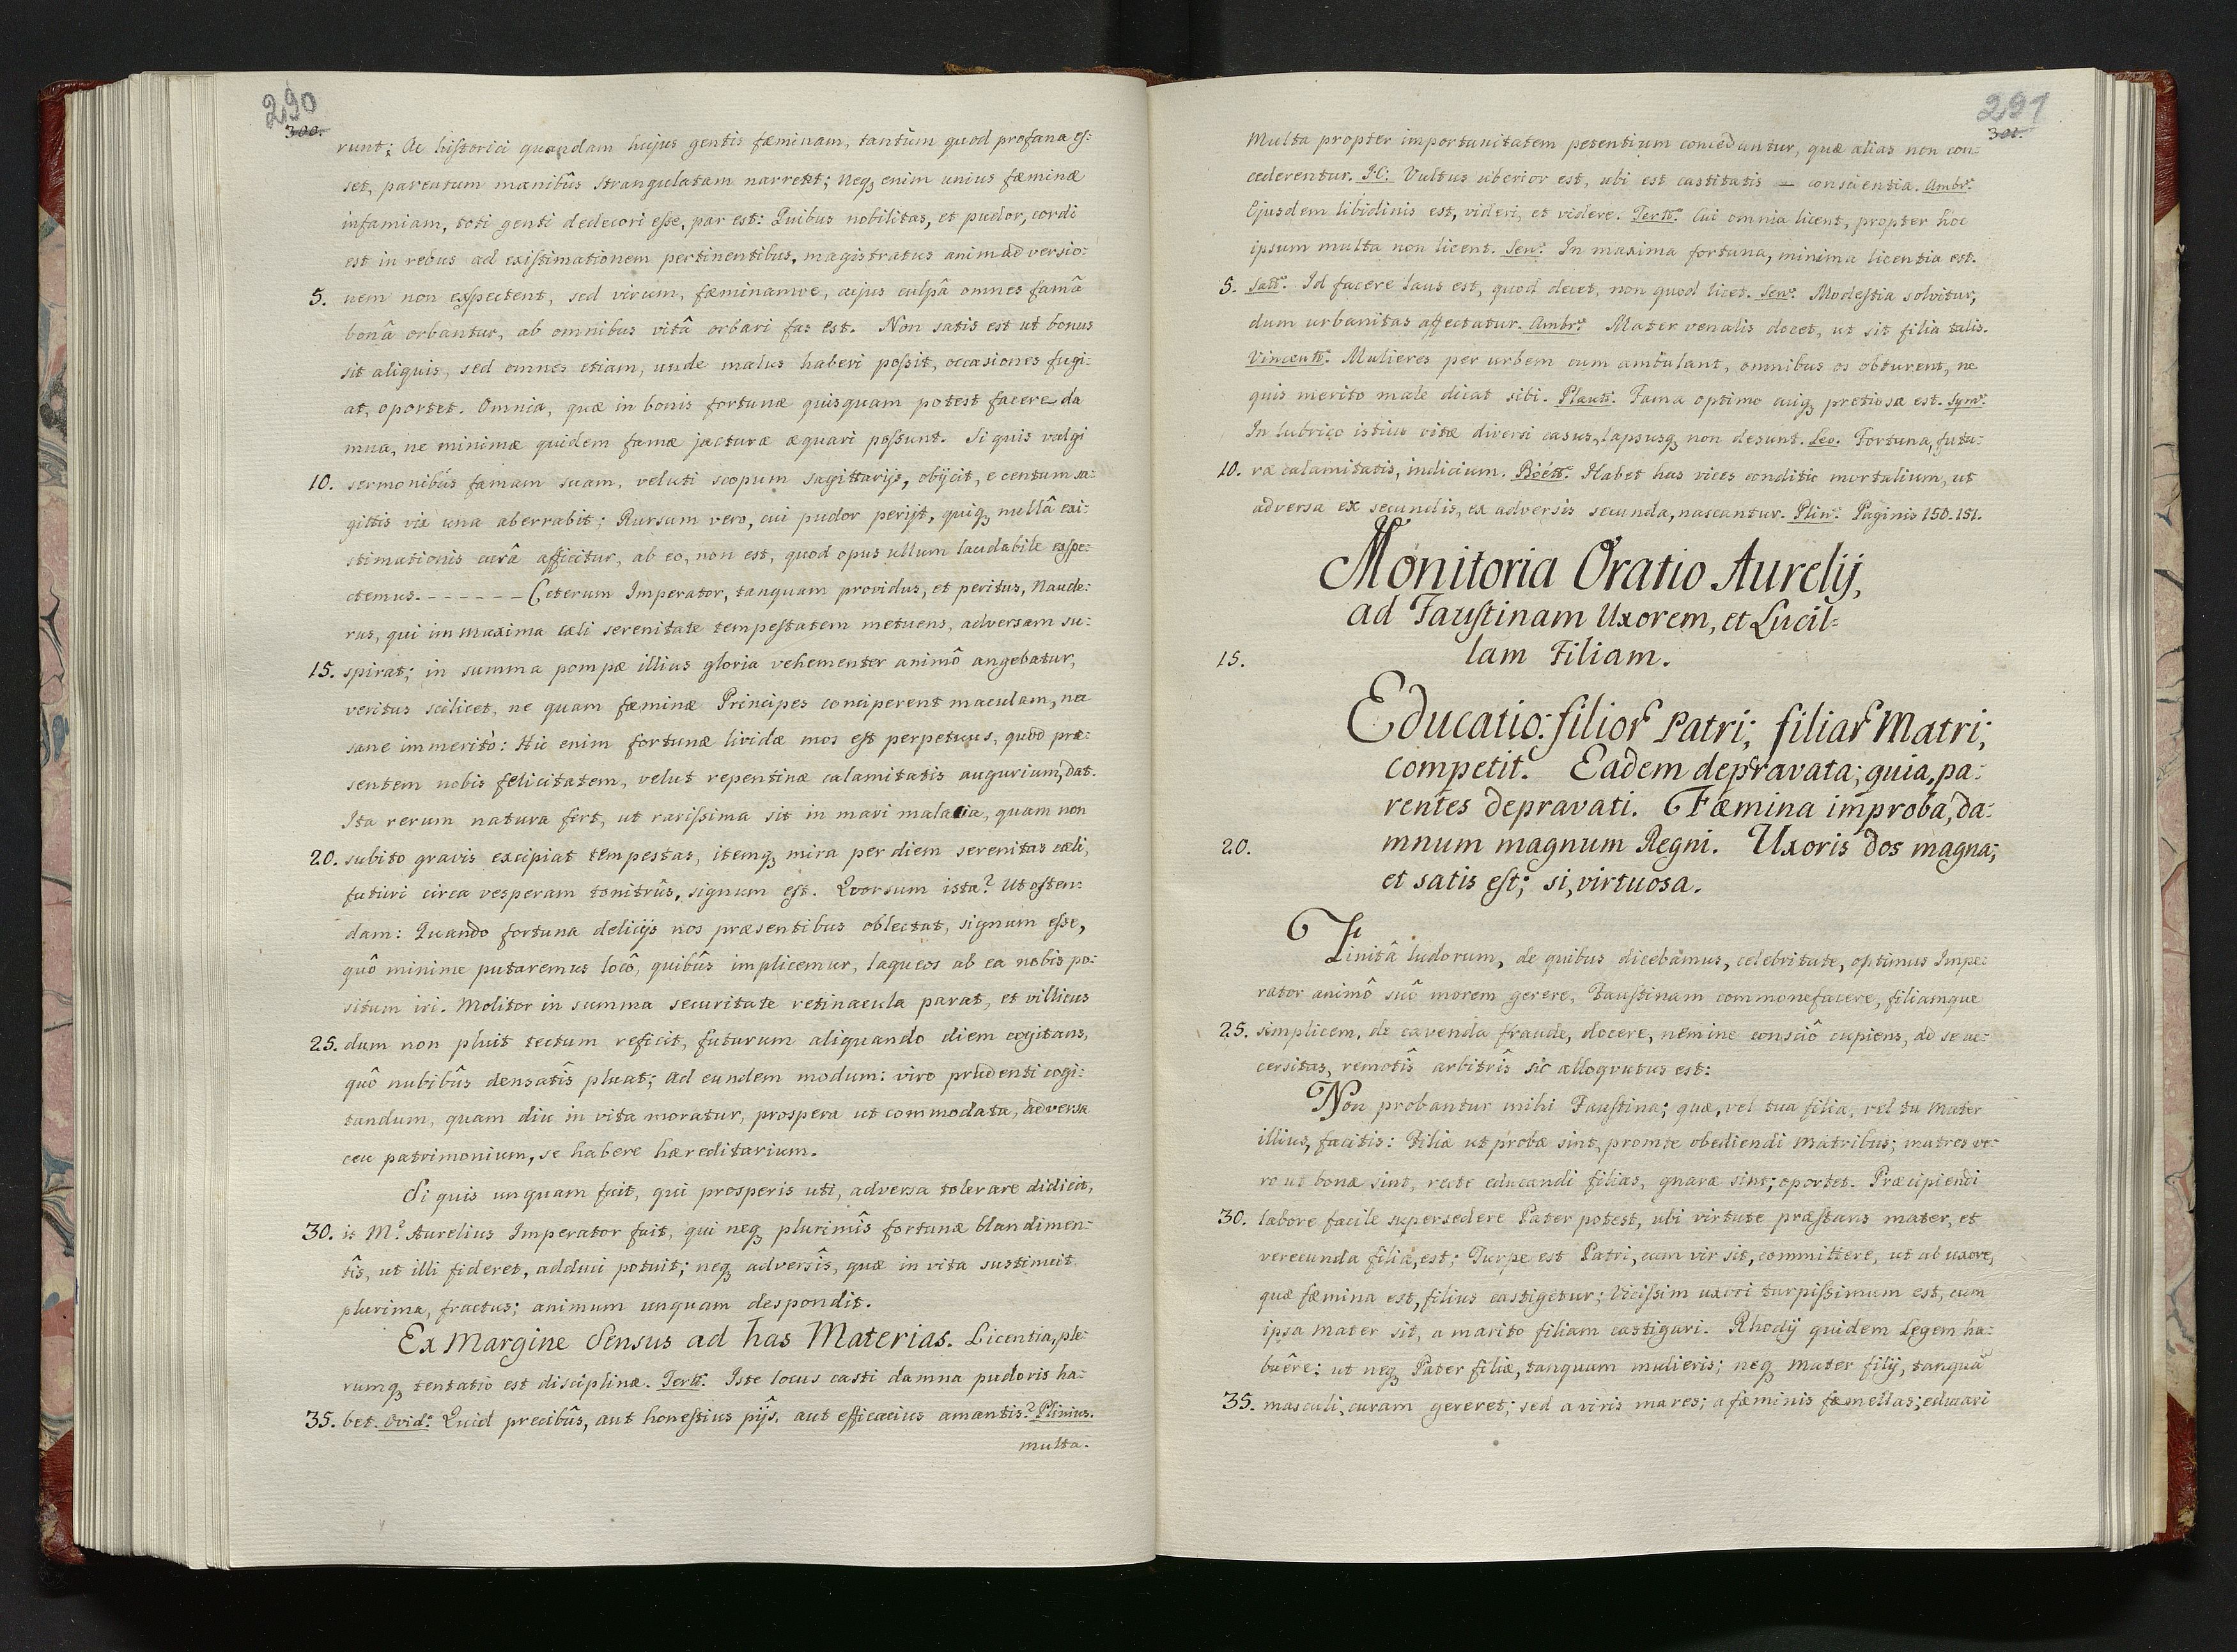 290
300.
runt: Ac historici quandam hujus gentis fæminam, tantùm quod profana es:
set, parentum manibûs strangulatam narrent; neq₃ enim unius fæminæ
infamiam, toti genti dedecori esse, par est: Quibus nobilitas, et pudor, cordi
est in rebus ad existimationem pertinentibus, magistratus animadversio:
5. nem non exspectent, sed virum, fæminamve, cujus culpâ omnes famâ
bonâ orbantur, ab omnibus vitâ orbari fas est. Non satis est ut bonus
sit aliquis, sed omnes etiam, unde malus haberi possit, occasiones fugi:
at, oportet. Omnia, quæ in bonis fortunæ quisquam potest facere da
mna, ne minimæ quidem famæ jacturæ æquari possunt. Si quis vulgi
10. sermonibûs famam suam, veluti scopum sagittarijs, objicit, e centum sa:
gittis vix una aberrabit; Rursum vero, cui pudor perijt, quiq₃ nullâ exi:
stimationis curâ afficitur, ab eo, non est, quod opus ullum laudabile exspe:
ctemus. - - - - - - Ceterum Imperator, tanquam providus, et peritus, Naucle:
rus, qui in maxima cæli serenitate tempestatem metuens, adversam su:
15. spirat; in summa pompæ illius gloria vehementer animô angebatur,
veritus scilicet, ne quam fæminæ Principes conciperent maculam, nec
sane immeritò: Hic enim fortunæ lividæ mos est perpetuus, quod præ:
sentem nobis felicitatem, velut repentinæ calamitatis augurium, dat.
Ita rerum natura fert, ut rarissima sit in mari malacia, quam non
20. subito gravis excipiat tempestas, itemq₃ mira per diem serenitas cæli,
futuri circa vesperam tonitrûs, signum est. Quorsum ista? Ut osten:
dam: Quando fortuna delicijs nos præsentibus oblectat, signum esse,
quô minime putaremus locô, quibûs implicemur, laqueos ab ea nobis po:
situm iri. Molitor in summa securitate retinacula parat, et villicus
25. dum non pluit tectum reficit, futurum aliquando diem cogitans,
quô nubibûs densatîs pluat; Ad eundem modum: viro prudenti cogi:
tandum, quam diu in vita moratur, prospera ut commodata, adversa
ceu patrimonium, se habere hæreditarium.
Si quis unquam fuit, qui prosperis uti, adversa tolerare didicit,
30. is M.⁹ Aurelius Imperator fuit, qui neq₃ plurimîs fortunæ blandimen:
tîs, ut illi fideret, adduci potuit; neq₃ adversîs, quæ in vita sustinuit
plurima, fractus; animum unquam despondit.
Ex Margine Sensus ad has Materias. Licentia, ple:
rumq₃ tentatio est disciplinæ. Tertt.⁹ Iste locus casti damna pudoris ha:
35. bet. Ovid.⁹ Quid precibûs, aut honestius pijs, aut efficacius amantis? Plinius.
multa.
291
301.
Multa propter importunitatem petentium conceduntur, quæ alias non con:
cederentur. I.C. Vultus uberior est, ubi est castitatis — conscientia. Ambr.⁹
Ejusdem libidinis est, videri, et videre. Tertt.⁹ Cui omnia licent, propter hoc
ipsum multa non licent. Sen.⁹ In maxima fortuna, minima licentia est.
5. Sall.⁹ Id facere laus est, quod decet, non quod licet. Sen.⁹ Modestia solvitur,
dum urbanitas affectatur. Ambr.⁹ Mater venalis docet, ut sit filia talis.
Vincentt.⁹ Mulieres per urbem cum ambulant, omnibus os obturent, ne
quis merito male dicat sibi. Plautt.⁹ Fama optimo cuiq₃ pretiosa est. Sym.⁹
In lubrico istius vitæ diversi casus, lapsusq₃ non desunt. Leo. Fortuna, futu:
10. ræ calamitatis, indicium. Boétt.⁹ Habet has vices conditio mortalium, ut
adversa ex secundis, ex adversis secunda, nascantur. Plin.⁹ Paginis 150. 151.
Monitoria Oratio Aurelij,
ad Faustinam Uxorem, et Lucil=
15. lam Filiam.
Educatio: filior̃ Patri; filiar̃ Matri;
competit. Eadem depravata; quia, pa:
rentes depravati. Fæmina improba, da:
20. mnum magnum Regni. Uxoris dos magna;
et satis est; si, virtuosa.
Finitâ ludorum, de quibus dicebamus, celebritate, optimus Impe:
rator animô suô morem gerere, Faustinam commonefacere, filiamque
25. simplicem, de cavenda fraude, docere, nemine consciô cupiens, ad se ac:
cersitas, remotîs arbitrîs sic alloqvutus est:
Non probantur mihi Faustina; quæ, vel tua filia, vel tu Mater
illius, facitis: Filiæ ut probæ sint, promte obediendi Matribus; matres ve:
ro ut bonæ sint, recte educandi filias, gnaræ sint; oportet. Præcipiendi
30. labore facile supersedere Pater potest, ubi virtute præstans mater, et
verecunda filia, est; Turpe est Patri, cum vir sit, committere, ut ab uxore,
quæ fæmina est, filius castigetur; Vicissim uxori turpissimum est, cum
ipsa Mater sit, a marito filiam castigari. Rhodij quidem Legem ha:
buêre: ut neq₃ Pater filiæ, tanquam mulieris; neq₃ Mater filij, tanquã
35. masculi, curam gereret; sed a viris mares; a fæminis fæmellas; educari